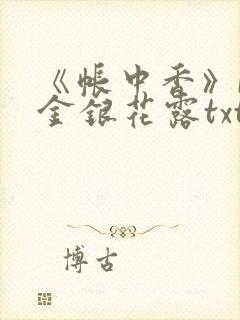 《帐中香》
金银花露txt
博古